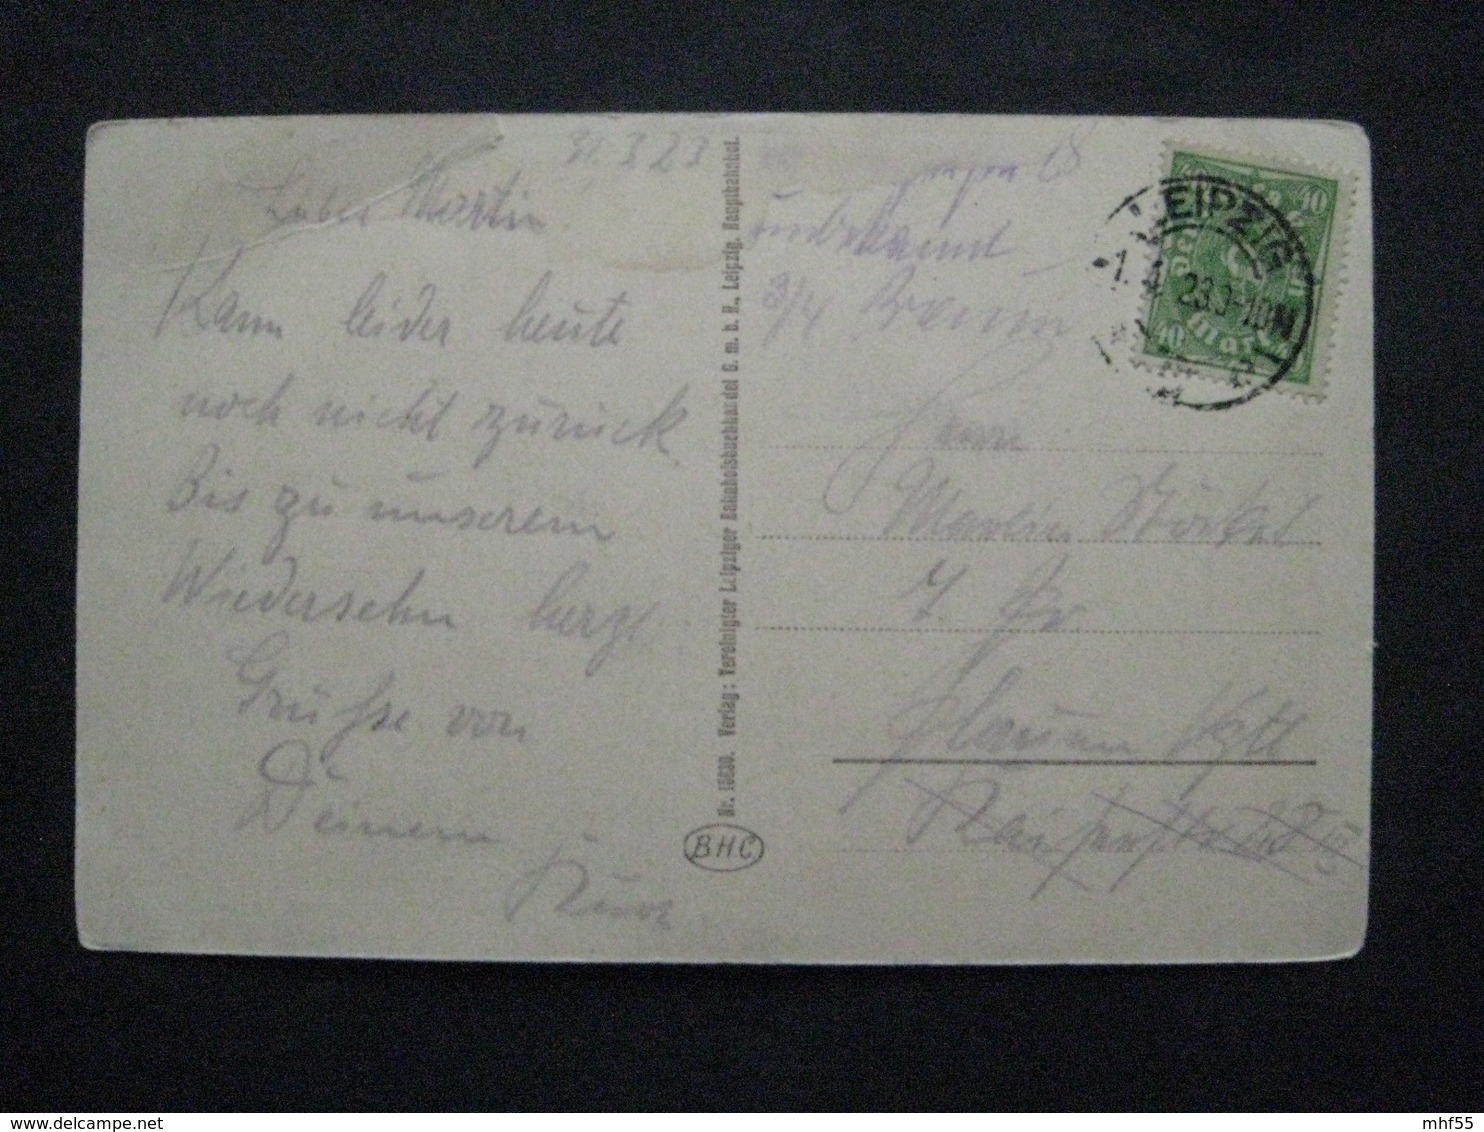 31.3.23
Lieber Martin
Kann leider heute
noch nicht zurück.
Bis zu unserem
Wiedersehn herzl.
Grüsse von
Deinem
Kurt.
Nr. 15630. Verlag: Vereinigter Leipziger Bahnhofsbuchhandel G. m. b. H., Leipzig, Hauptbahnhof.
BHC
unbekannt
3/4 Braun
LEIPZIG
-1.4.23.9-10N
40
40
40
Mark
Herrn
Martin
Plauen Vgtl